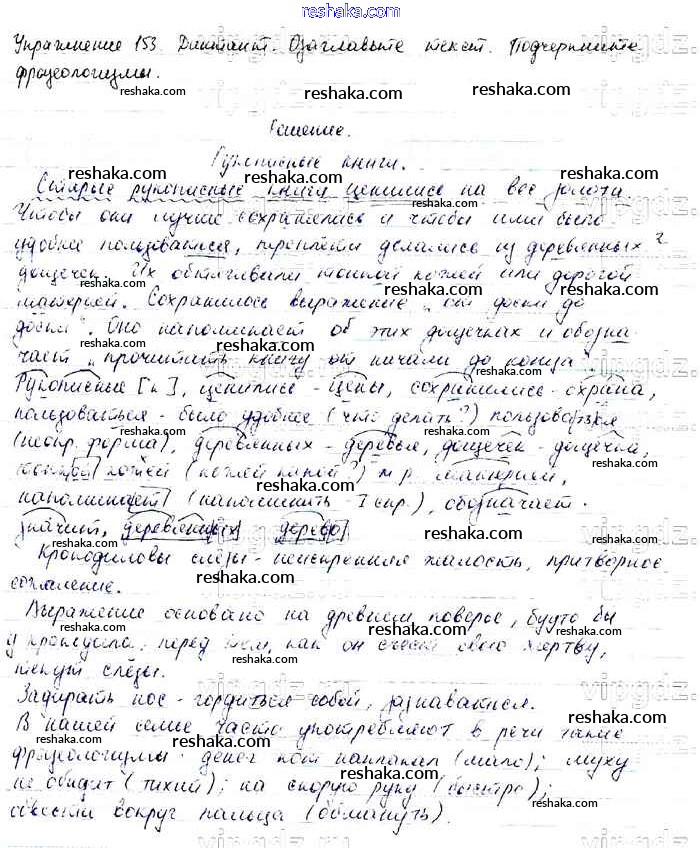 reshaka.com
Упражнение 153. Диктант. Озаглавьте текст. Подчеркните
фразеологизмы.
Решение.
Рукописные книги.
Старые рукописные книги ценились на вес золота.
Чтобы они лучше сохранялись и чтобы ими было
удобнее пользоваться, переплёты делались из деревянных
дощечек. Их обтягивали тонкой кожей или дорогой
материей. Сохранилось выражение „от доски до
доски". Оно напоминает об этих дощечках и обозна-
чает „прочитать книгу от начала до конца".
Рукописные [к], ценились - цены, сохранились - охрана,
пользоваться - было удобнее (что делать?) пользоваться
(неопр. форма), деревянных - деревья, дощечек - дощечка,
тонкой кожей (кожей какой?) материей,
напоминает (напоминать - I спр.), обозначает -
значит, деревянных дерево
Крокодиловы слёзы - неискренняя жалость, притворное
сожаление.
Выражение основано на древнем поверье, будто бы
у крокодила, перед тем, как он съест свою жертву,
текут слёзы.
Задирать нос - гордиться собой, зазнаваться.
В нашей семье часто употребляют в речи такие
фразеологизмы: денег кот наплакал (мало); муху
не обидит (тихий); на скорую руку (быстро);
обвести вокруг пальца (обмануть).